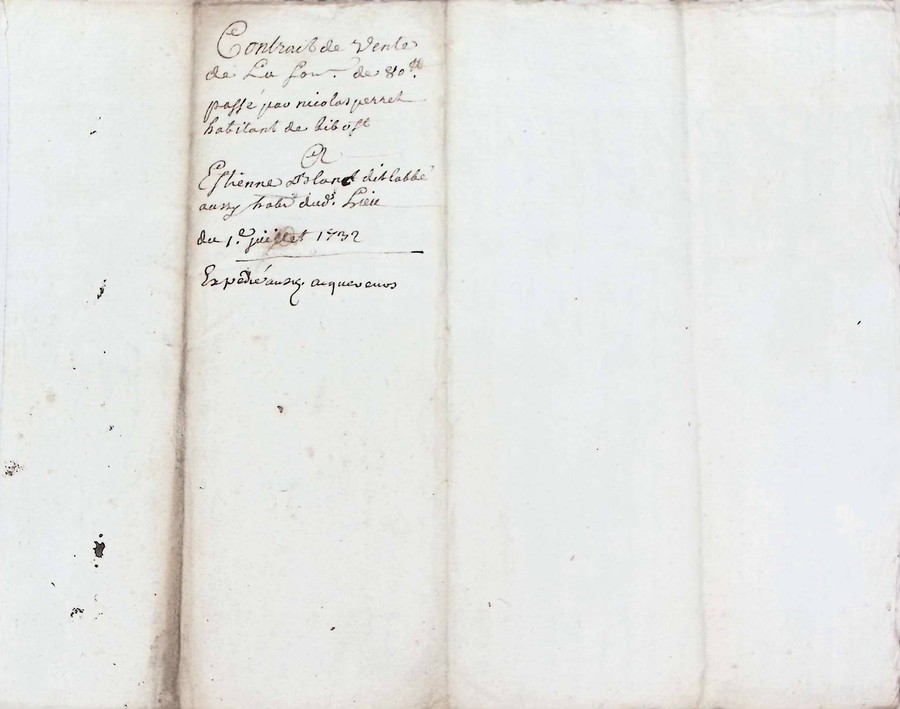 Contrait de Vente
de La Som.e de 80 ₶.
passé par nicolas perret
habitant de bibost
A
Estienne Blanc dit labbé
aussy habt dud. Lieu
du 1.e juillet 1732
Expedié aussy.